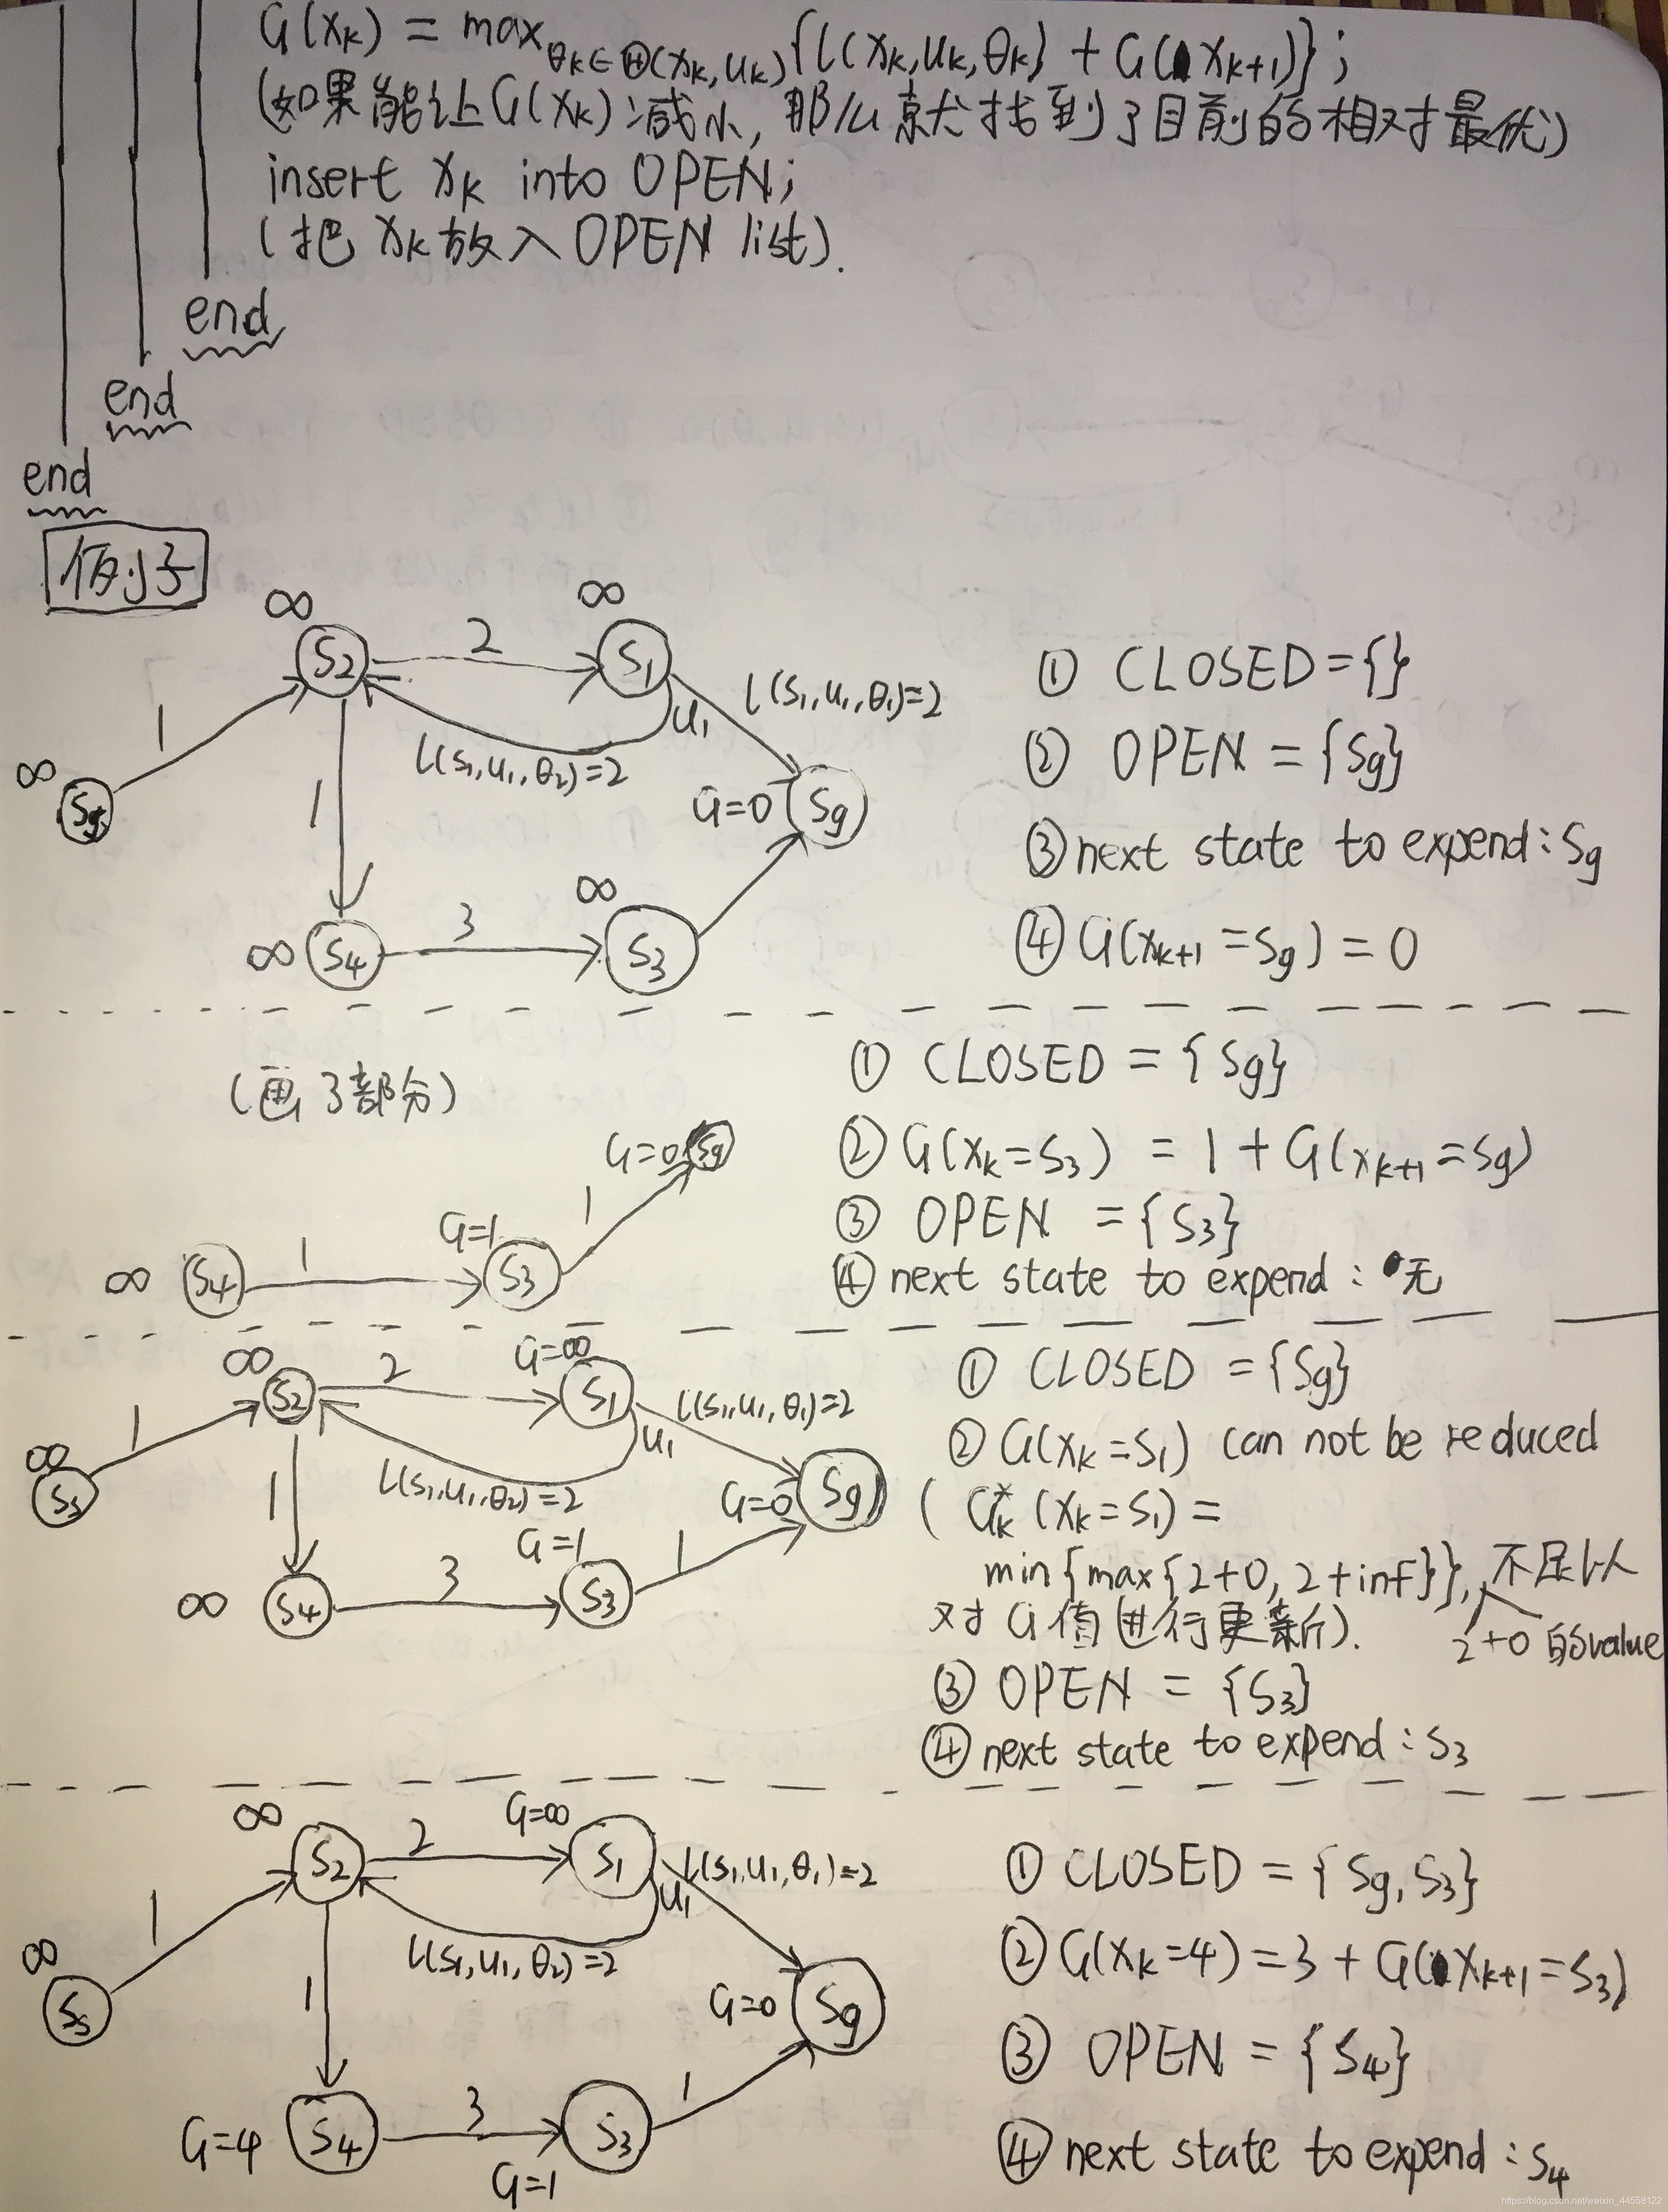 G(xₖ) = max_θₖ∈Θ(xₖ,uₖ){l(xₖ,uₖ,θₖ) + G(xₖ₊₁)};
(如果能让G(xₖ)减小,那么就找到了目前的相对最优)
insert xₖ into OPEN;
(把 xₖ放入OPEN list).
end
end
end
例子
∞
∞
S₂
2
S₁
l(s₁,u₁,θ₁)=2
u₁
1
L(s₁,u₁,θ₂)=2
∞
1
G=0
Sg
∞
∞
S₄
3
S₃
① CLOSED={}
② OPEN = {Sg}
③ next state to expend: Sg
④ G(xₖ₊₁=Sg) = 0
(画了部分)
G=0
Sg
1
G=1
∞
S₄
1
S₃
① CLOSED = {Sg}
② G(xₖ=S₃) = 1 + G(xₖ₊₁=Sg)
③ OPEN = {S₃}
④ next state to expend: 无
∞
G=∞
S₂
2
S₁
l(s₁,u₁,θ₁)=2
u₁
1
∞
Ss
L(s₁,u₁,θ₂)=2
1
G=0
Sg
G=1
1
∞
S₄
3
S₃
① CLOSED = {Sg}
② G(xₖ=S₁) can not be reduced
( Gₖ* (xₖ=S₁) =
min{max{2+0, 2+inf}}, 不足以
对G值进行更新).
2+0 的value
③ OPEN = {S₃}
④ next state to expend: S₃
∞
G=∞
S₂
2
S₁
L(s₁,u₁,θ₁)=2
u₁
1
∞
Ss
L(s₁,u₁,θ₂)=2
1
G=0
Sg
G=4
S₄
3
S₃
1
G=1
① CLOSED = {Sg, S₃}
② G(xₖ=4) = 3 + G(xₖ₊₁=S₃)
③ OPEN = {S₄}
④ next state to expend: S₄
https://blog.csdn.net/weixin_44558122